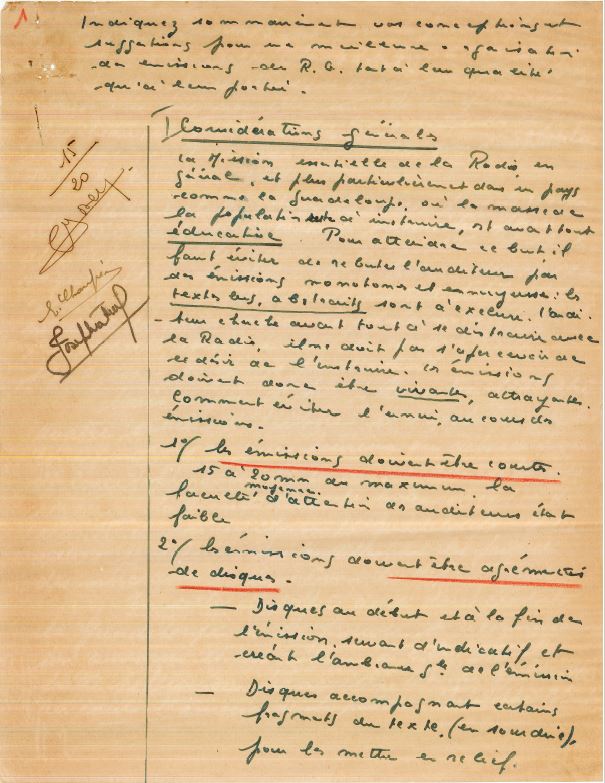 1
Indiquez sommairement vos conceptions et
suggestions pour une meilleure organisation
des émissions de R. G. tant à leur qualité
qu'à leur portée.
15
20
I) Considérations générales
La Mission essentielle de la Radio en
général, et plus particulièrement dans un pays
comme la Guadeloupe, où la masse de
la population est à instruire, est avant tout
éducative. Pour atteindre ce but il
faut éviter de rebuter l'auditeur par
des émissions monotones et ennuyeuses : les
textes longs, abstraits sont à exclure. L'audi-
teur cherche avant tout à se distraire avec
la Radio, il ne doit pas s'apercevoir de
ce désir de l'instruire. Les émissions
doivent donc être vivantes, attrayantes.
Comment éviter l'ennui, au cours des
émissions.
1º/ les émissions doivent être courtes.
15 à 20 mn au maximum, la
faculté moyenne d'attention des auditeurs étant
faible
2º/ les émissions doivent être agrémentées
de disques.
— Disques au début et à la fin de
l'émission, servant d'indicatif et
créant l'ambiance gle de l'émission
— Disques accompagnant certains
fragments du texte, (en sourdine),
pour les mettre en relief.